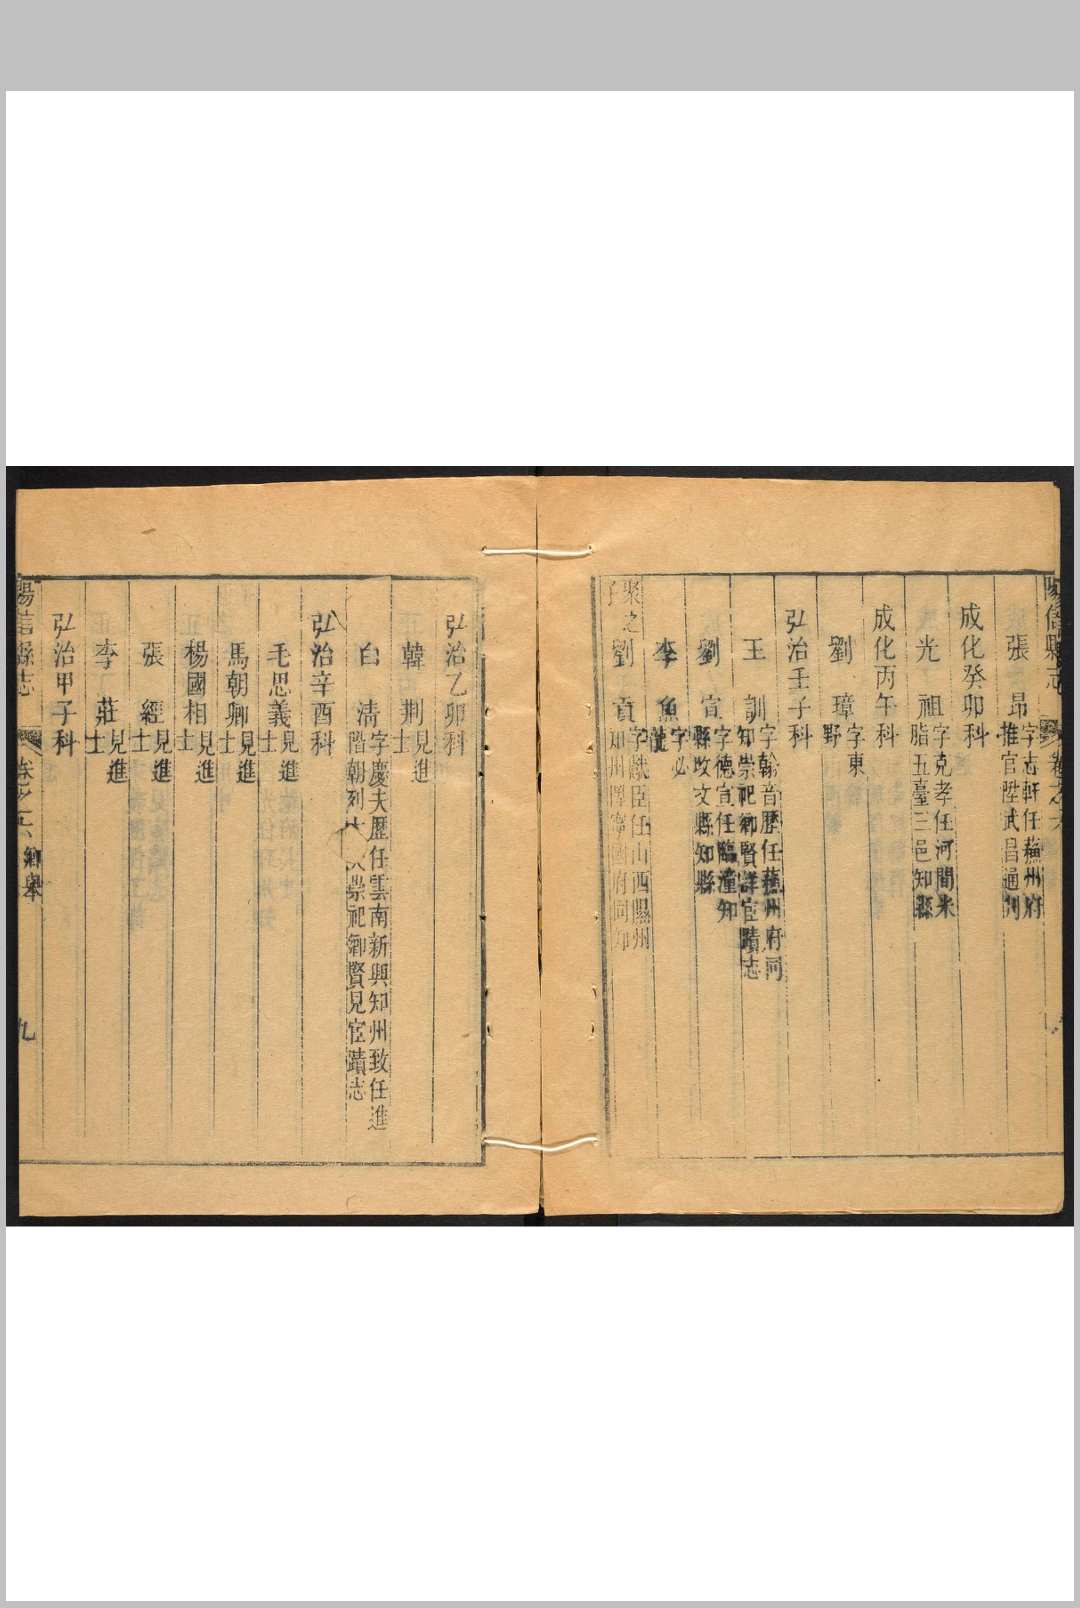 陽信縣志 卷之六
張 昂 字志軒任蘇州府推官陞武昌通判
成化癸卯科
光 祖 字克孝任河間米脂五臺三邑知縣
成化丙午科
劉 璋 字東野
弘治壬子科
王 訓 字翰音歷任蘇州府同知崇祀鄉賢詳宦蹟志
劉 宣 字德宣任臨潼知縣改文縣知縣
李 魚 字必
聚之子 劉 貢 字獻臣任山西隰州知州陞寧國府同知
弘治乙卯科
韓 荆 見進士
白 清 字慶夫歷任雲南新興知州致任進階朝列 崇祀鄉賢見宦蹟志
弘治辛酉科
毛思義 見進士
馬朝卿 見進士
楊國相 見進士
張 經 見進士
李 莊 見進士
弘治甲子科
陽信縣志 卷之六 鄉舉 九